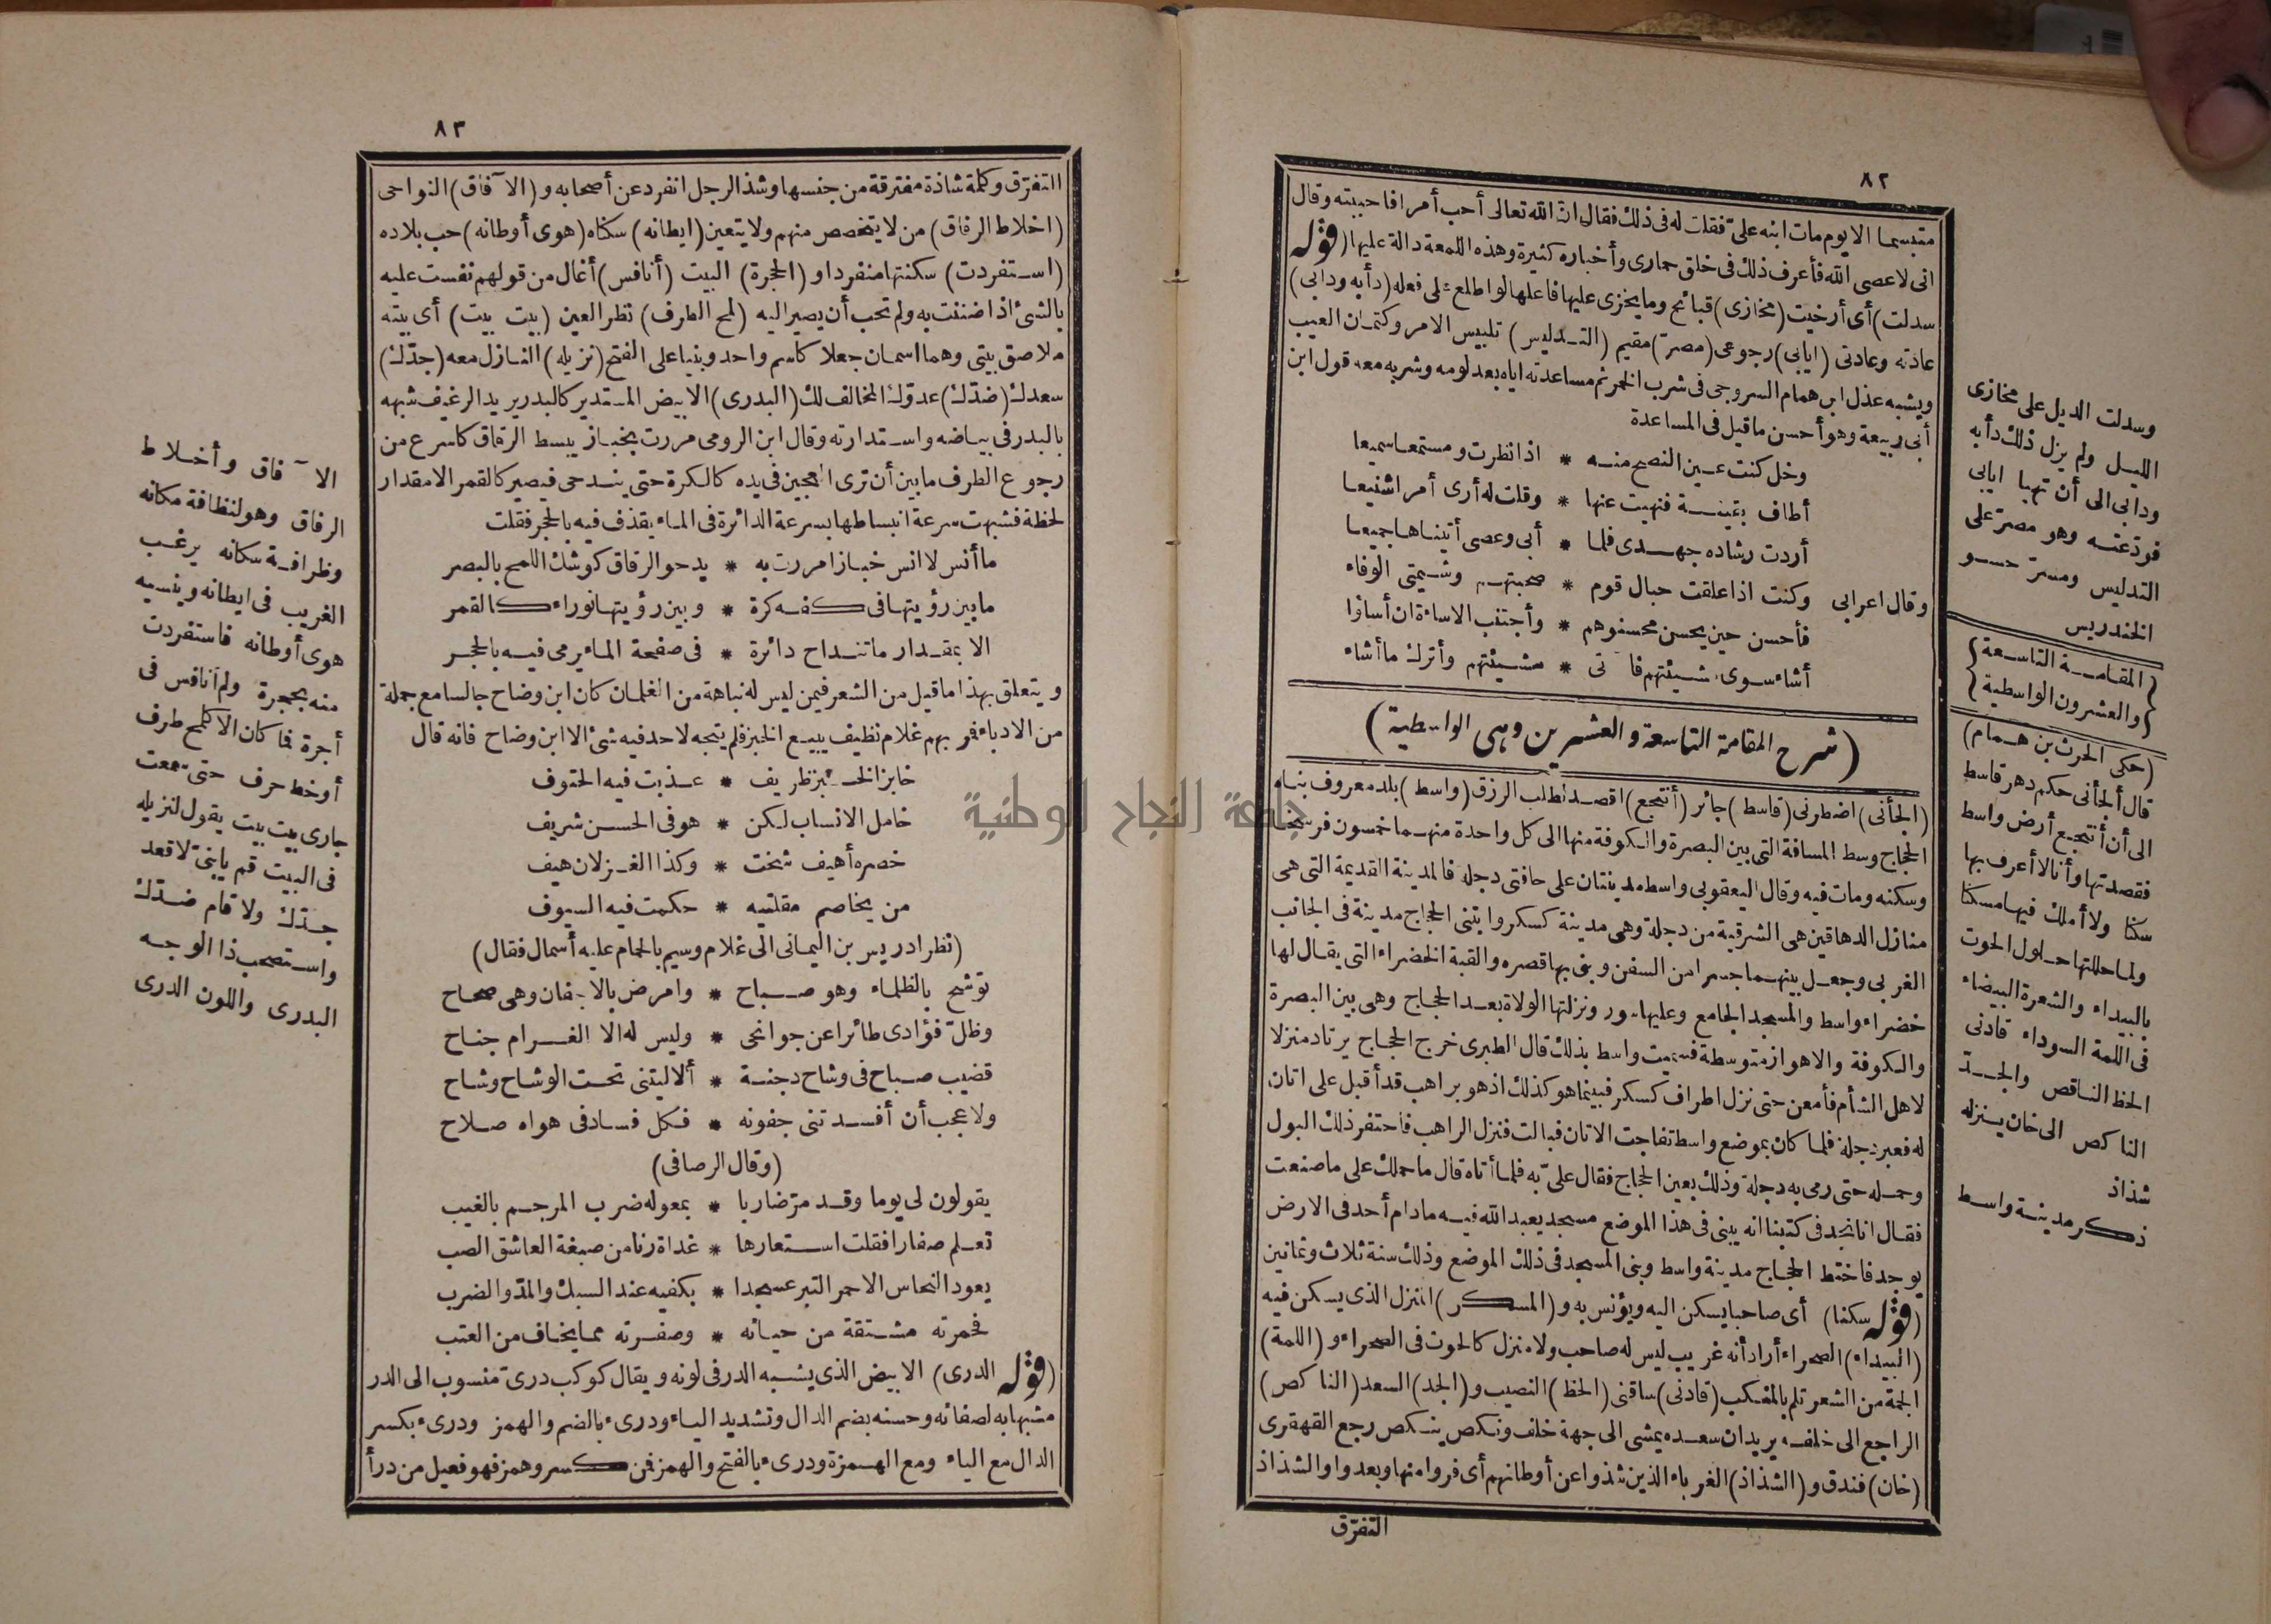 ٨٢
متبسما الا يوم مات ابنه علىّ فقلت له فى ذلك فقال ان الله تعالى أحب أمرا فاحببته وقال
انى لاعصى الله فأعرف ذلك فى خلق حمارى وأخباره كثيرة وهذه اللمعة دالة عليها (قوله
سدلت) أى أرخيت (مخازى) قبائح وما يخزى عليها فاعلها لو اطلع على فعله (دأبه ودابى)
عادته وعادتى (ايابى) رجوعى (مصرّ) مقيم (التدليس) تلبيس الامر وكتمان العيب
ويشبه عذل ابن همام السروجى فى شرب الخمر ثم مساعدته اياه بعد لومه وشربه معه قول ابن
أبى ربيعة وهو أحسن ما قيل فى المساعدة
وخل كنت عين النصح منه * اذا نظرت ومستمعا سميعا
أطاف بغية فنهيت عنها * وقلت له أرى أمرا شنيعا
أردت رشاده جهدى فلما * أبى وعصى أتيناها جميعا
وقال اعرابى وكنت اذا علقت حبال قوم * صحبتهم وشيمتى الوفاء
فأحسن حين يحسن محسنوهم * وأجتنب الاساءة ان أساؤا
أشاء سوى مشيئتهم فآتى * مشيئتهم وأترك ما أشاء
(شرح المقامة التاسعة والعشرين وهى الواسطية)
(الجأنى) اضطرنى (قاسط) جائر (أنتجع) اقصد لطلب الرزق (واسط) بلد معروف بناه
الحجاج وسط المسافة التى بين البصرة والكوفة منها الى كل واحدة منهما خمسون فرسخا
وسكنه ومات فيه وقال اليعقوبى واسط مدينتان على حافتى دجلة فالمدينة القديمة التى هى
منازل الدهاقين هى الشرقية من دجلة وهى مدينة كسكر وابتنى الحجاج مدينة فى الجانب
الغربى وجعل بينهما جسرا من السفن وبنى بها قصره والقبة الخضراء التى يقال لها
خضراء واسط والمسجد الجامع وعليها سور ونزلتها الولاة بعد الحجاج وهى بين البصرة
والكوفة والاهواز متوسطة فسميت واسط بذلك قال الطبرى خرج الحجاج يرتاد منزلا
لاهل الشأم فأمعن حتى نزل اطراف كسكر فبينما هو كذلك اذ هو براهب قد أقبل على اتان
له فعبر دجلة فلما كان بموضع واسط تفاجت الاتان فبالت فنزل الراهب فاحتفر ذلك البول
وحمله حتى رمى به دجلة وذلك بعين الحجاج فقال علىّ به فلما أتاه قال ما حملك على ما صنعت
فقال انا نجد فى كتبنا انه يبنى فى هذا الموضع مسجد يعبد الله فيه ما دام أحد فى الارض
يوحد فاختط الحجاج مدينة واسط وبنى المسجد فى ذلك الموضع وذلك سنة ثلاث وثمانين
(قوله سكنا) أى صاحبا يسكن اليه ويؤنس به و(المسكن) المنزل الذى يسكن فيه
(البيداء) الصحراء أراد أنه غريب ليس له صاحب ولا منزل كالحوت فى الصحراء و(اللمة)
الجمة من الشعر تلم بالمنكب (قادنى) ساقنى (الحظ) النصيب و(الجد) السعد (الناكص)
الراجع الى خلفه يريد ان سعده يمشى الى جهة خلف ونكص ينكص رجع القهقرى
(خان) فندق و(الشذاذ) الغرباء الذين شذوا عن أوطانهم أى فروا منها وبعدوا والشذاذ
التفرّق
وسدلت الذيل على مخازى
الليل ولم يزل ذلك دأبه
ودابى الى أن تهيا ايابى
فودّعته وهو مصرّ على
التدليس ومسرّ حسو
الخندريس
{المقامة التاسعة}
{والعشرون الواسطية}
(حكى الحرث بن همام)
قال ألجأنى حكم دهر قاسط
الى أن أنتجع أرض واسط
فقصدتها وأنا لا أعرف بها
سكنا ولا أملك فيها مسكنا
ولما حللتها حلول الحوت
بالبيداء والشعرة البيضاء
فى اللمة السوداء قادنى
الحظ الناقص والجدّ
الناكص الى خان ينزله
شذاذ
ذكر مدينة واسط
٨٣
التفرّق وكلمة شاذة مفترقة من جنسها وشذ الرجل انفرد عن أصحابه و(الآفاق) النواحى
(اخلاط الرفاق) من لا يتخصص منهم ولا يتعين (ايطانه) سكناه (هوى أوطانه) حب بلاده
(استفردت) سكنتها منفردا و(الحجرة) البيت (أنافس) أغال من قولهم نفست عليه
بالشئ اذا ضننت به ولم تحب أن يصير اليه (لمح الطرف) نظر العين (بيت بيت) أى بيته
ملاصق بيتى وهما اسمان جعلا كاسم واحد وبنيا على الفتح (نزيله) النازل معه (جدّك)
سعدك (ضدّك) عدوّك المخالف لك (البدرى) الابيض المستدير كالبدر يريد الرغيف شبهه
بالبدر فى بياضه واستدارته وقال ابن الرومى مررت بخباز يبسط الرقاق كاسرع من
رجوع الطرف ما بين أن ترى العجين فى يده كالكرة حتى يندحى فيصير كالقمر الا مقدار
لحظة فشبهت سرعة انبساطها بسرعة الدائرة فى الماء يقذف فيه بالحجر فقلت
ما أنس لا انس خبازا مررت به * يدحو الرقاق كوشك اللمح بالبصر
ما بين رؤيتها فى كفه كرة * وبين رؤيتها نوراء كالقمر
الا بمقدار ما تنداح دائرة * فى صفحة الماء يرمى فيه بالحجر
ويتعلق بهذا ما قيل من الشعر فيمن ليس له نباهة من الغلمان كان ابن وضاح جالسا مع جملة
من الادباء فمر بهم غلام نظيف يبيع الخبز فلم يتجه لاحد فيه شئ الا ابن وضاح فانه قال
خابز الخبز ظريف * عذبت فيه الحتوف
خامل الانساب لكن * هو فى الحسن شريف
خصره أهيف شخت * وكذا الغزلان هيف
من يخاصم مقلتيه * حكمت فيه السيوف
(نظر ادريس بن اليمانى الى غلام وسيم بالحمام عليه أسمال فقال)
توشح بالظلماء وهو صباح * وامرض بالاجفان وهى صحاح
وظلّ فؤادى طائرا عن جوانحى * وليس له الا الغرام جناح
قضيب صباح فى وشاح دجنة * ألا ليتنى تحت الوشاح وشاح
ولا عجب أن أفسدتنى جفونه * فكل فساد فى هواه صلاح
(وقال الرصافى)
يقولون لى يوما وقد مرّ ضاربا * بمعوله ضرب المرجم بالغيب
تعلم صفارا فقلت استعارها * غداة رنا من صبغة العاشق الصب
يعود النحاس الاحمر التبر عسجدا * بكفيه عند السبك والمدّ والضرب
فحمرته مشتقة من حيائه * وصفرته مما يخاف من العتب
(قوله الدرى) الابيض الذى يشبه الدر فى لونه ويقال كوكب درىّ منسوب الى الدر
مشبها به لصفائه وحسنه بضم الدال وتشديد الياء ودرىء بالضم والهمز ودرىء بكسر
الدال مع الياء ومع الهمزة ودرىء بالفتح والهمز فمن كسر وهمز فهو فعيل من درأ
الآفاق وأخلاط
الرفاق وهو لنظافة مكانه
وظرافة سكانه يرغب
الغريب فى ايطانه وينسيه
هوى أوطانه فاستفردت
منه بحجرة ولم أنافس فى
أجرة فما كان الا كلمح طرف
أو خط حرف حتى سمعت
جارى بيت بيت يقول لنزيله
فى البيت قم يا بنىّ لا قعد
جدّك ولا قام ضدّك
واستصحب ذا الوجه
البدرى واللون الدرى
جامعة النجاح الوطنية